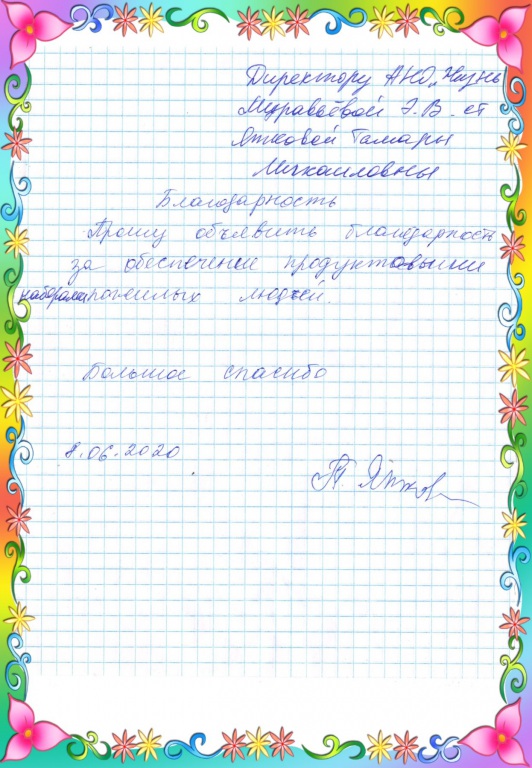 Директору АНО „Жизнь
Муравьёвой Э.В. от
Яжковой Тамары
Михайловны
Благодарность
Прошу объявить благодарность
за обеспечение продуктовыми
наборами пожилых людей.
Большое спасибо
8.06.2020